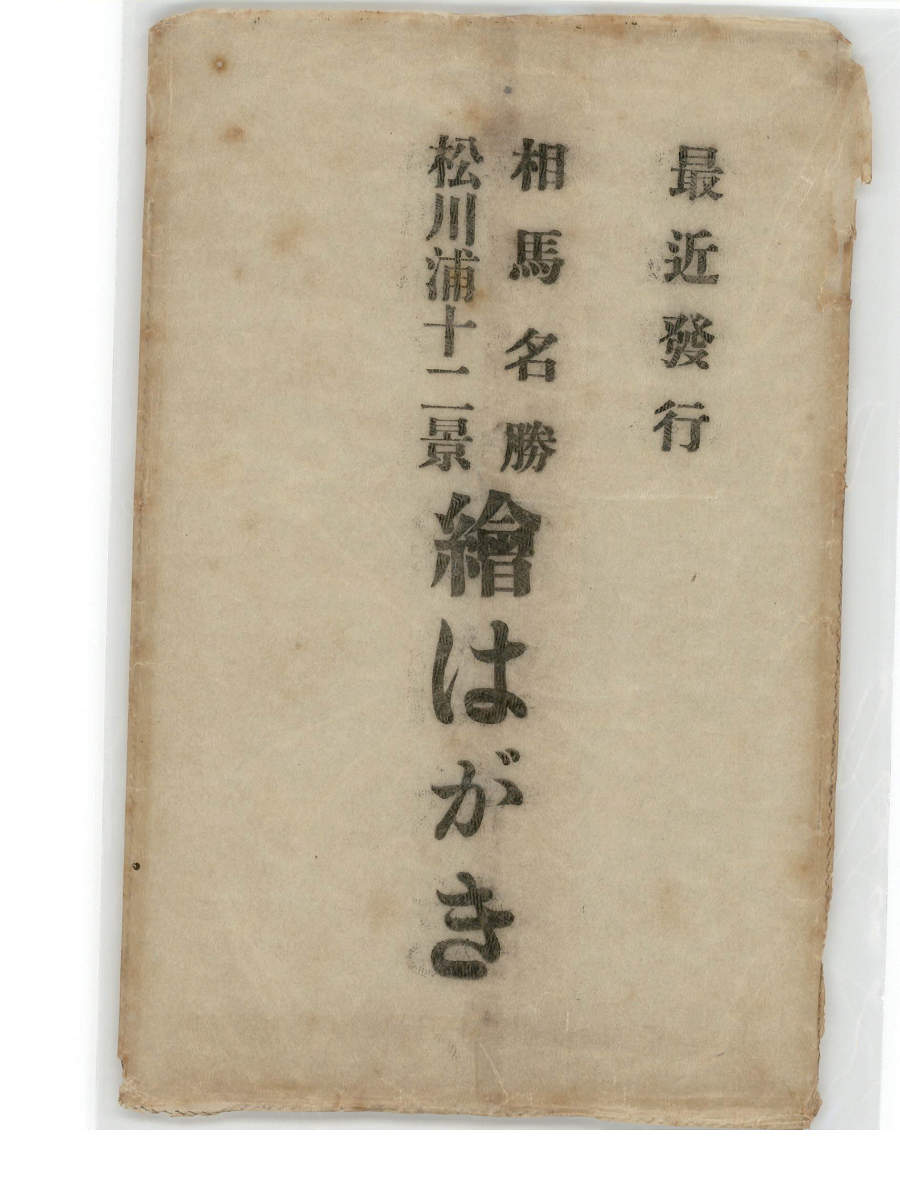 最近發行
相馬名勝
松川浦十二景
繪はがき